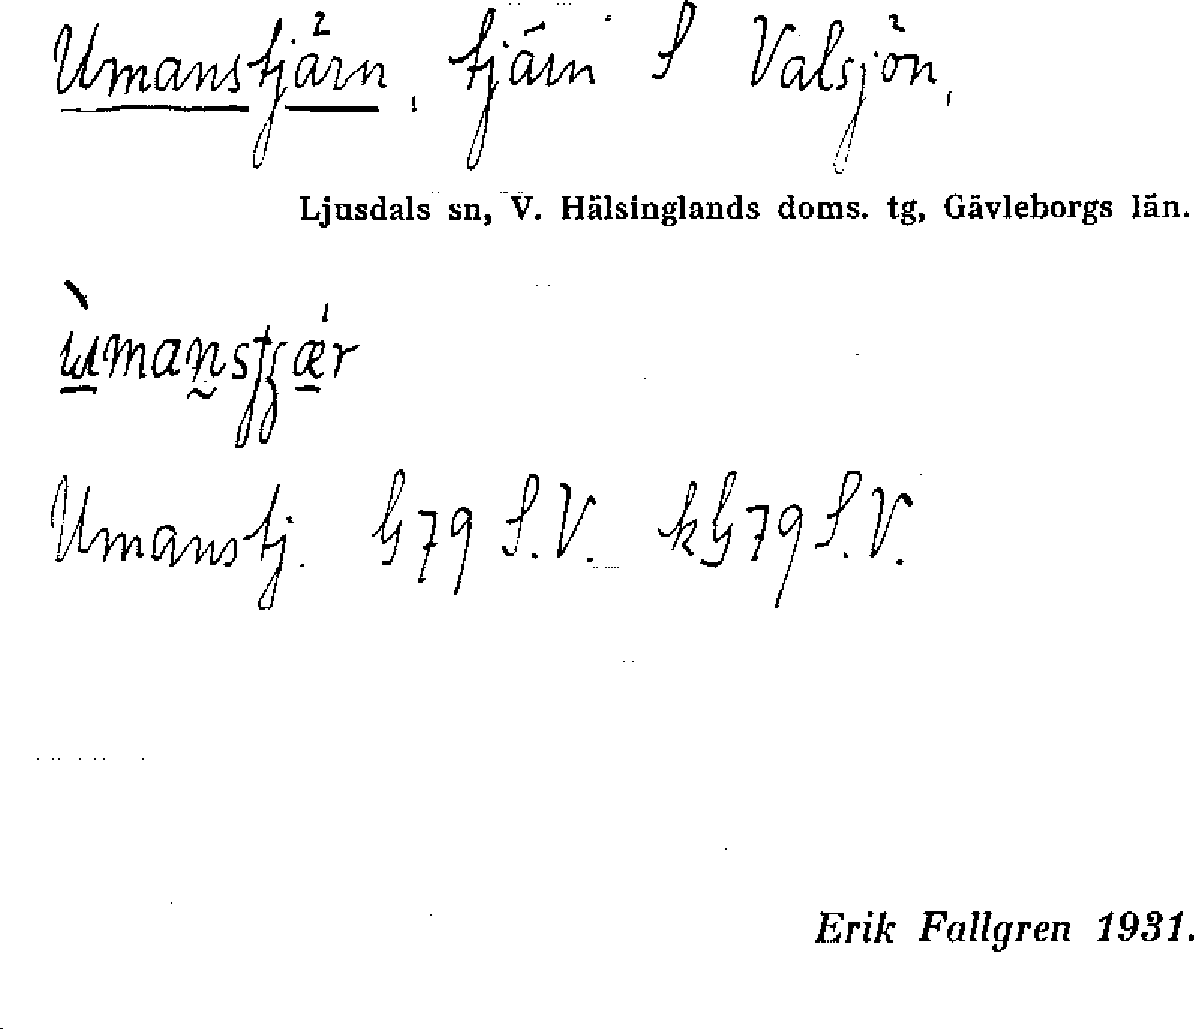 Umanstjärn, tjärn S Valsjön,
Ljusdals sn, V. Hälsinglands doms. tg, Gävleborgs län.
Umanstj. G79 S.V. kG79 S.V.
Erik Fallgren 1931.